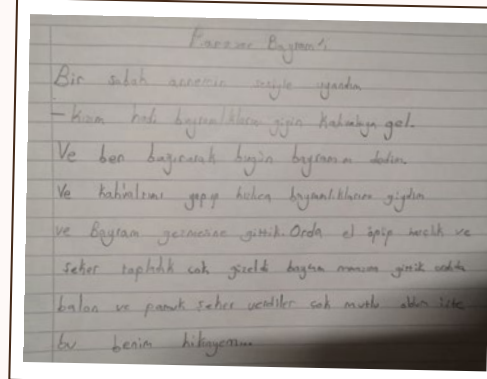 Ramazan Bayramı
Bir sabah annemin sesiyle uyandım.
- Kızım hadi bayramlıklarını giyin kahvaltıya gel.
Ve ben bağırarak bugün bayramm dedim.
Ve kahvaltımı yapıp hızlıca bayramlıklarımı giydim
ve Bayram gezmesine gittik. Orda el öpüp harçlık ve
şeker topladık çok güzeldi bayram gittik orda
balon ve pamuk şeker verdiler çok mutlu oldum işte
bu benim hikayemm